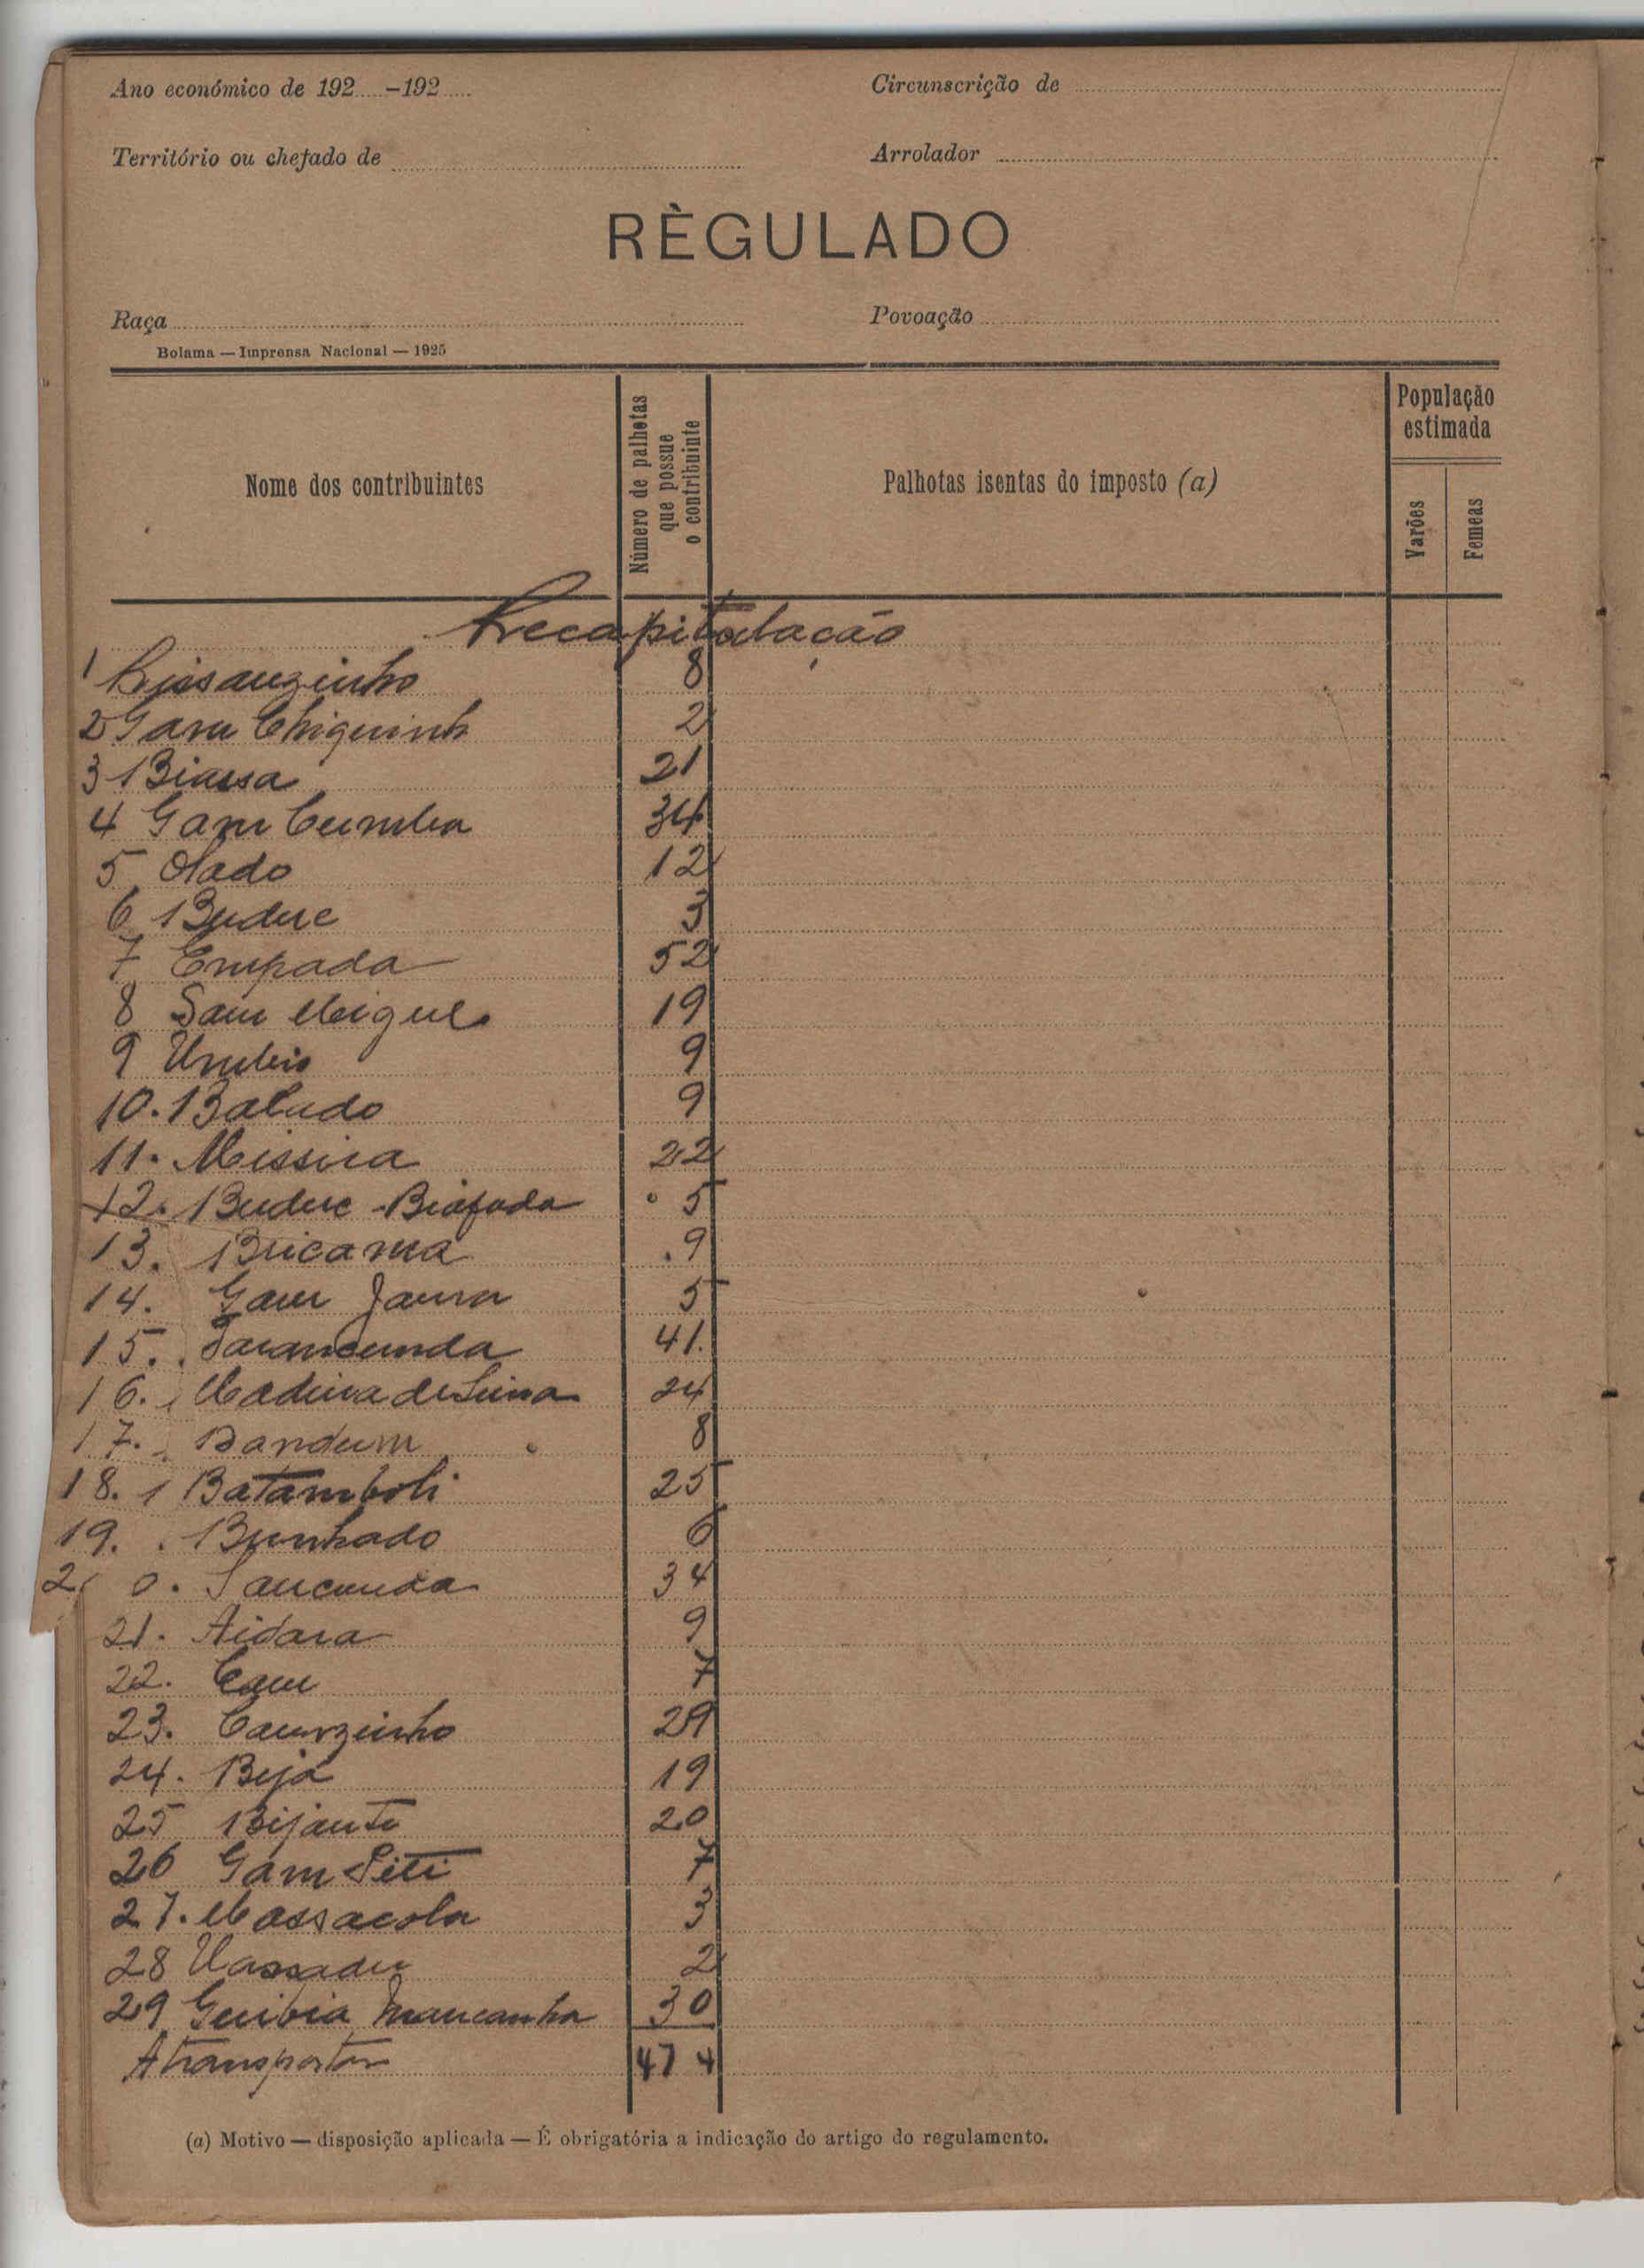 Ano económico de 192.....-192.....
Circunscrição de
Território ou chefado de
Arrolador
RÈGULADO
Raça
Povoação
Bolama — Imprensa Nacional — 1925
Nome dos contribuintes
Número de palhotas que possue o contribuinte
Palhotas isentas do imposto (a)
População estimada
Varões
Femeas
Recapitulação
1 Bissauzinho 8
2 Gam Chiquinh 2
3 Biassa 21
4 Gam Cumba 34
5 Olado 12
6 Buduc 3
7 Empada 52
8 Sam Miguel 19
9 9
10. Baludo 9
11. Missira 22
12. Buduc Biafada 5
13. Bricama 9
14. Gam Jaura 5
15. Farancunda 41.
16. Madina de Seina 24
17. Bandum 8
18. Batamboli 25
19. Bunhado 6
20. Sancunda 34
21. Aidara 9
22. Caur 7
23. Caurzinho 29
24. Bijá 19
25 Bijante 20
26 Gam Siti 7
27. Massacola 3
28 Uassadu 2
29 Guibia Mancanha 30
A transportar 474
(a) Motivo — disposição aplicada — É obrigatória a indicação do artigo do regulamento.